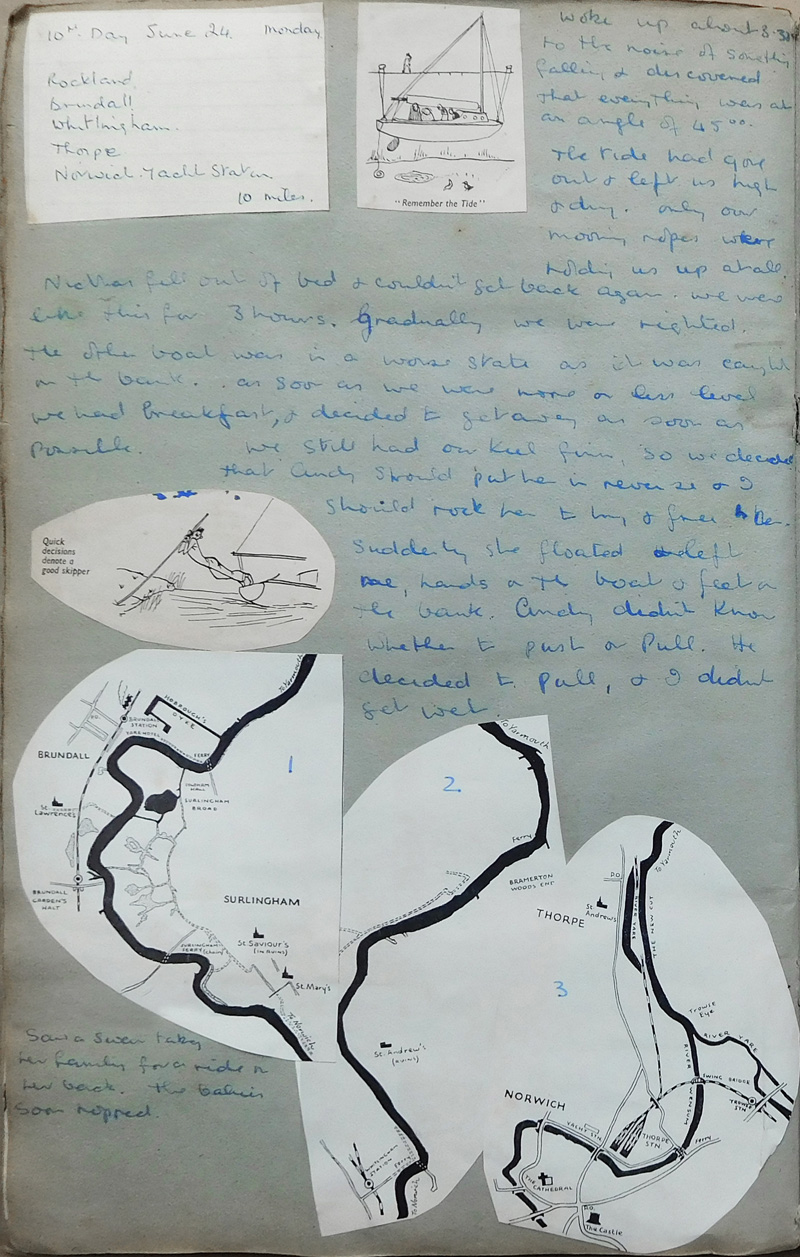 10th Day June 24. Monday
Rockland
Brundall
Whitlingham.
Thorpe
Norwich Yacht Station
10 miles.
"Remember the Tide"
Woke up about 8.30
to the noise of somethin
falling & discovered
that everything was at
an angle of 45°°.
The tide had gone
out & left us high
& dry. only our
mooring ropes were
holding us up at all.
fell out of bed & couldn't get back again. we were
like this for 3 hours. Gradually we were righted.
the other boat was in a worse state as it was caught
on the bank. . as soon as we were more or less level
we had breakfast, & decided to get away as soon as
possible. we still had our keel firm, so we decided
that Andy should put her in reverse & I
should rock her to try & free her.
Quick
decisions
denote a
good skipper
Suddenly she floated & left
me, hands on the boat & feet on
the bank. Andy didn't know
whether to push or pull. He
decided to pull, & I didn't
get wet.
1
To Yarmouth
HOBROUGH'S
DYKE
BRUNDALL
STATION
YARE HOTEL
FERRY
BRUNDALL
HALL
SURLINGHAM
BROAD
St.
Lawrence's
BRUNDALL
GARDEN'S
HALT
SURLINGHAM
St Saviour's
(IN RUINS)
SURLINGHAM
FERRY (chain)
St. Mary's
To Norwich
2.
To Yarmouth
Ferry
BRAMERTON
WOODS END
St. Andrew's
(RUINS)
WHITLINGHAM
STATION
Ferry
To Norwich
3
To Yarmouth
P.O.
St
Andrew's
THORPE
RIVER YARE
THE NEW CUT
Trowse
Eye
RIVER YARE
RIVER WENSUM
SWING BRIDGE
TROWSE
STN.
NORWICH
YACHT STN.
THORPE
STN.
Ferry
THE CATHEDRAL
P.O.
The Castle
Saw a swan taking
her family for a ride on
her back. the babies
soon hopped.